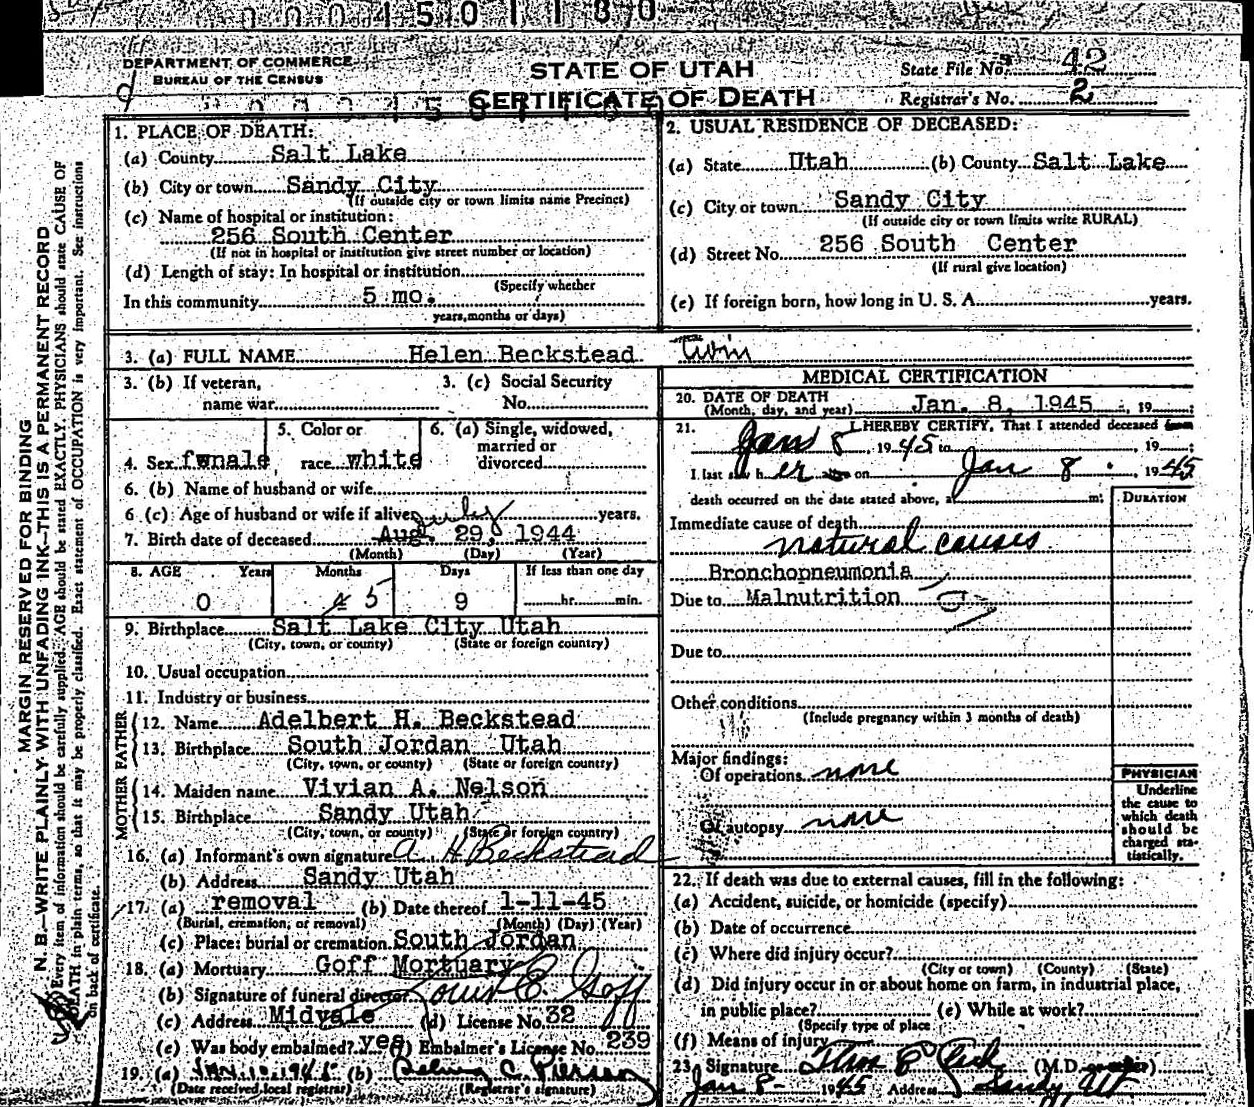 0004501180
DEPARTMENT OF COMMERCE
BUREAU OF THE CENSUS
STATE OF UTAH
CERTIFICATE OF DEATH
State File No. 42
Registrar's No. 2
MARGIN RESERVED FOR BINDING
N. B.—WRITE PLAINLY WITH UNFADING INK—THIS IS A PERMANENT RECORD
Every item of information should be carefully supplied. AGE should be stated EXACTLY. PHYSICIANS should state CAUSE OF
DEATH in plain terms, so that it may be properly classified. Exact statement of OCCUPATION is very important. See instructions
on back of certificate.
1. PLACE OF DEATH:
(a) County Salt Lake
(b) City or town Sandy City
(If outside city or town limits name Precinct)
(c) Name of hospital or institution:
256 South Center
(If not in hospital or institution give street number or location)
(d) Length of stay: In hospital or institution
(Specify whether
In this community 5 mo.
years, months or days)
2. USUAL RESIDENCE OF DECEASED:
(a) State Utah (b) County Salt Lake
(c) City or town Sandy City
(If outside city or town limits write RURAL)
(d) Street No. 256 South Center
(If rural give location)
(e) If foreign born, how long in U. S. A. years.
3. (a) FULL NAME Helen Beckstead twin
3. (b) If veteran, name war
3. (c) Social Security No.
4. Sex female
5. Color or race white
6. (a) Single, widowed, married or divorced
6. (b) Name of husband or wife
6 (c) Age of husband or wife if alive years.
July
7. Birth date of deceased Aug. 29, 1944
(Month) (Day) (Year)
8. AGE Years Months Days If less than one day
0 4 5 9 hr. min.
9. Birthplace Salt Lake City Utah
(City, town, or county) (State or foreign country)
10. Usual occupation
11. Industry or business
FATHER
12. Name Adelbert H. Beckstead
13. Birthplace South Jordan Utah
(City, town, or county) (State or foreign country)
MOTHER
14. Maiden name Vivian A. Nelson
15. Birthplace Sandy Utah
(City, town, or county) (State or foreign country)
16. (a) Informant's own signature A. H Beckstead
(b) Address Sandy Utah
17. (a) removal (b) Date thereof 1-11-45
(Burial, cremation, or removal) (Month) (Day) (Year)
(c) Place: burial or cremation South Jordan
18. (a) Mortuary Goff Mortuary
(b) Signature of funeral director Goff
(c) Address Midvale (d) License No. 32
(e) Was body embalmed? yes (f) Embalmer's License No. 239
19. (a) JAN. 10. 1945 (b)
(Date received local registrar) (Registrar's signature)
MEDICAL CERTIFICATION
20. DATE OF DEATH
(Month, day, and year) Jan. 8, 1945, 19
21. I HEREBY CERTIFY, That I attended deceased from
Jan 8, 1945 to , 19
I last saw her alive on Jan 8, 1945
death occurred on the date stated above, at m.
DURATION
Immediate cause of death
natural causes
Bronchopneumonia
Due to Malnutrition
Due to
Other conditions
(Include pregnancy within 3 months of death)
Major findings:
Of operations none
Of autopsy none
PHYSICIAN
Underline
the cause to
which death
should be
charged sta-
tistically.
22. If death was due to external causes, fill in the following:
(a) Accident, suicide, or homicide (specify)
(b) Date of occurrence
(c) Where did injury occur?
(City or town) (County) (State)
(d) Did injury occur in or about home on farm, in industrial place,
in public place? (e) While at work?
(Specify type of place
(f) Means of injury
23. Signature (M.D. or other)
Jan 8- 1945 Address Sandy, Ut